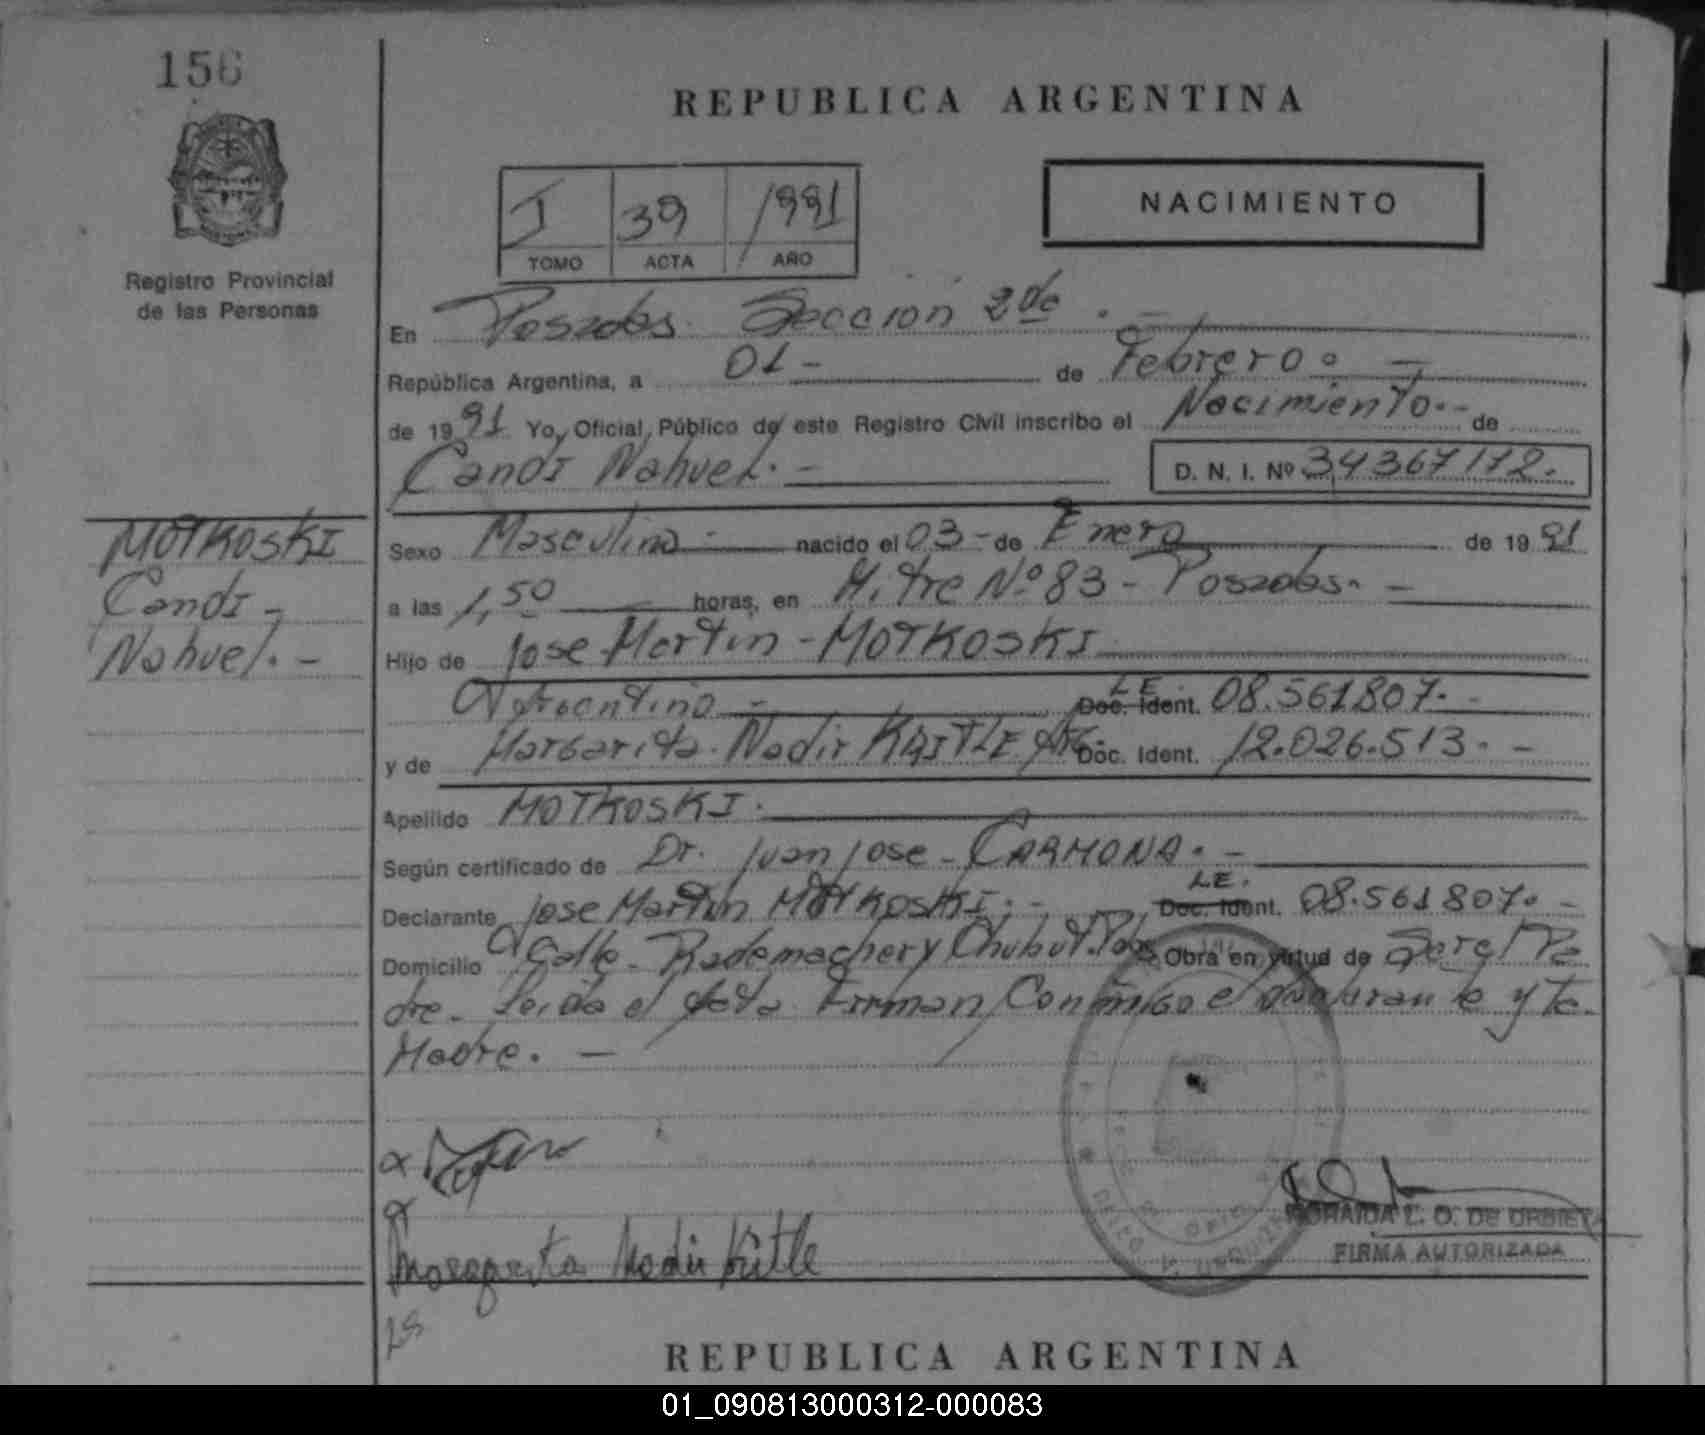 156
REPUBLICA ARGENTINA
I 39 1991
TOMO ACTA AÑO
NACIMIENTO
Registro Provincial
de las Personas
En Posadas Sección 2da. -
República Argentina, a 01 - de Febrero. -
de 1991 Yo, Oficial Público de este Registro Civil inscribo el Nacimiento. - de
Candi Nahuel. -
D. N. I. Nº 34367172.
MOTKOSKI
Candi -
Nahuel. -
Sexo Masculino - nacido el 03 - de Enero de 1991
a las 1,50 horas, en Mitre Nº 83 - Posadas. -
Hijo de Jose Martin - MOTKOSKI
Argentino - L E. Doc. Ident. 08.561807. -
y de Margarita Nadir KÜTLE Arg. Doc. Ident. 12.026.513. -
Apellido MOTKOSKI.
Según certificado de Dr. Juan Jose - CARMONA. -
Declarante Jose Martin MOTKOSKI. - L.E. Doc. Ident. 08.561807. -
Domicilio Calle - Rademacher y Chubut. Pdas Obra en virtud de Ser el Pa
dre. Leida el Acta Firman Conmigo el declarante y la
Madre. -
Margarita Nadir Kütle
ZORAIDA L. O. DE URBIETA
FIRMA AUTORIZADA
REPUBLICA ARGENTINA
01_090813000312-000083